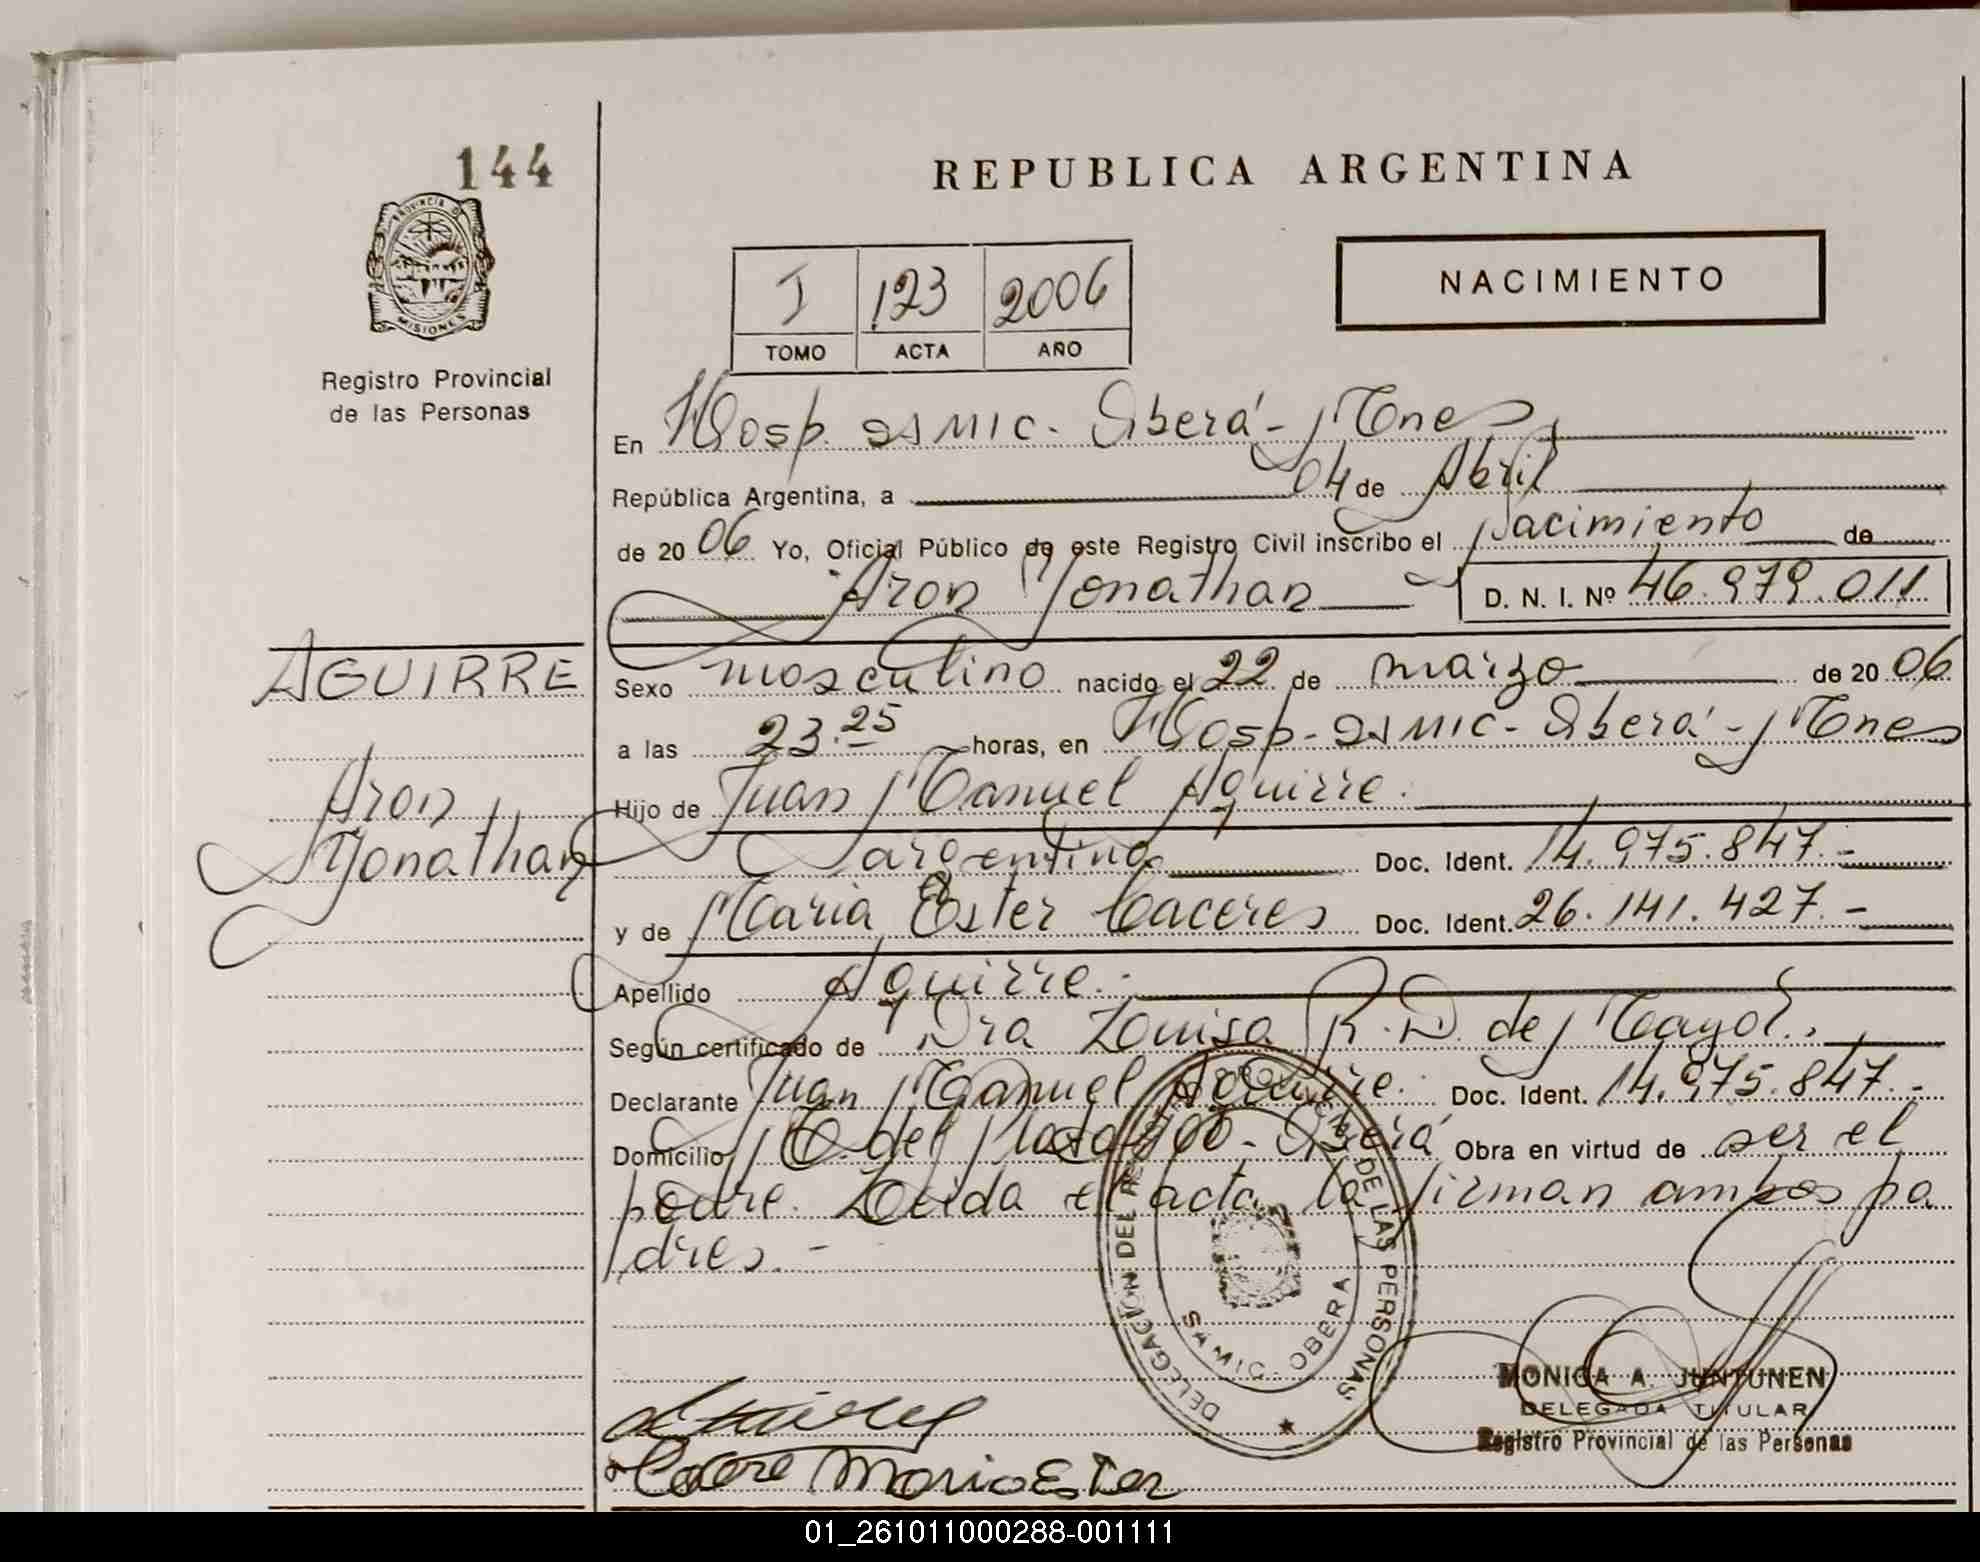 144
REPUBLICA ARGENTINA
PROVINCIA DE MISIONES
Registro Provincial
de las Personas
I 123 2006
TOMO ACTA AÑO
NACIMIENTO
En Hosp. SAMIC. Oberá - Mnes
República Argentina, a 04 de Abril
de 2006 Yo, Oficial Público de este Registro Civil inscribo el Nacimiento de
Aron Jonathan D. N. I. Nº 46.979.011
AGUIRRE
Aron
Jonathan
Sexo masculino nacido el 22 de marzo de 2006
a las 23.25 horas, en Hosp - SAMIC - Oberá - Mnes
Hijo de Juan Manuel Aguirre.
argentino Doc. Ident. 14.975.847.-
y de Maria Ester Caceres Doc. Ident. 26.141.427.-
Apellido Aguirre.-
Según certificado de Dra Louisa R. D. de Mayol.
Declarante Juan Manuel Aguirre. Doc. Ident. 14.975.847.-
Domicilio M. del - Oberá Obra en virtud de ser el
padre. Leida el acta, la firman ambos pa
dres.-
DELEGACIÓN DEL REGISTRO PROVINCIAL DE LAS PERSONAS
SAMIC - OBERA
MONICA A. JUNTUNEN
DELEGADA TITULAR
Registro Provincial de las Personas
Maria Ester
01_261011000288-001111